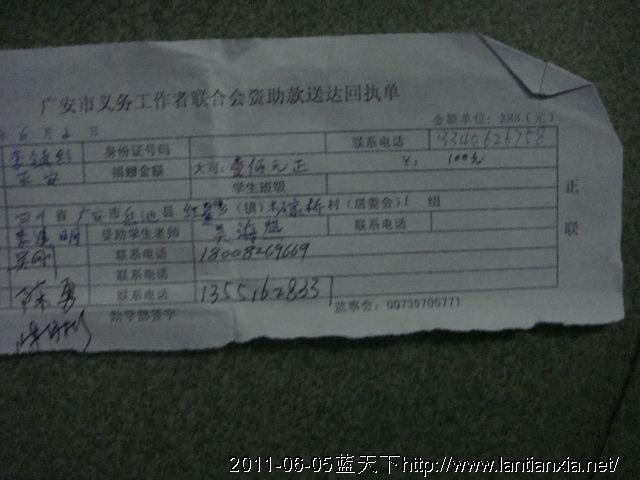 广安市义务工作者联合会资助款送达回执单
年 6 月 4 日 金额单位：RMB（元）
身份证号码 联系电话 13340626758
平安 捐赠金额 大写：壹佰元正 ￥： 100元
学生班级
四川 省 广安 市 岳池 县 （镇） 村（居委会） 1 组
李建明 受助学生老师 吴海 联系电话
联系电话 18008269669
联系电话
陈勇 联系电话 13551628337 监事会：00739705771
助学部签字
正联
2011-06-05蓝天下http://www.lantianxia.net/